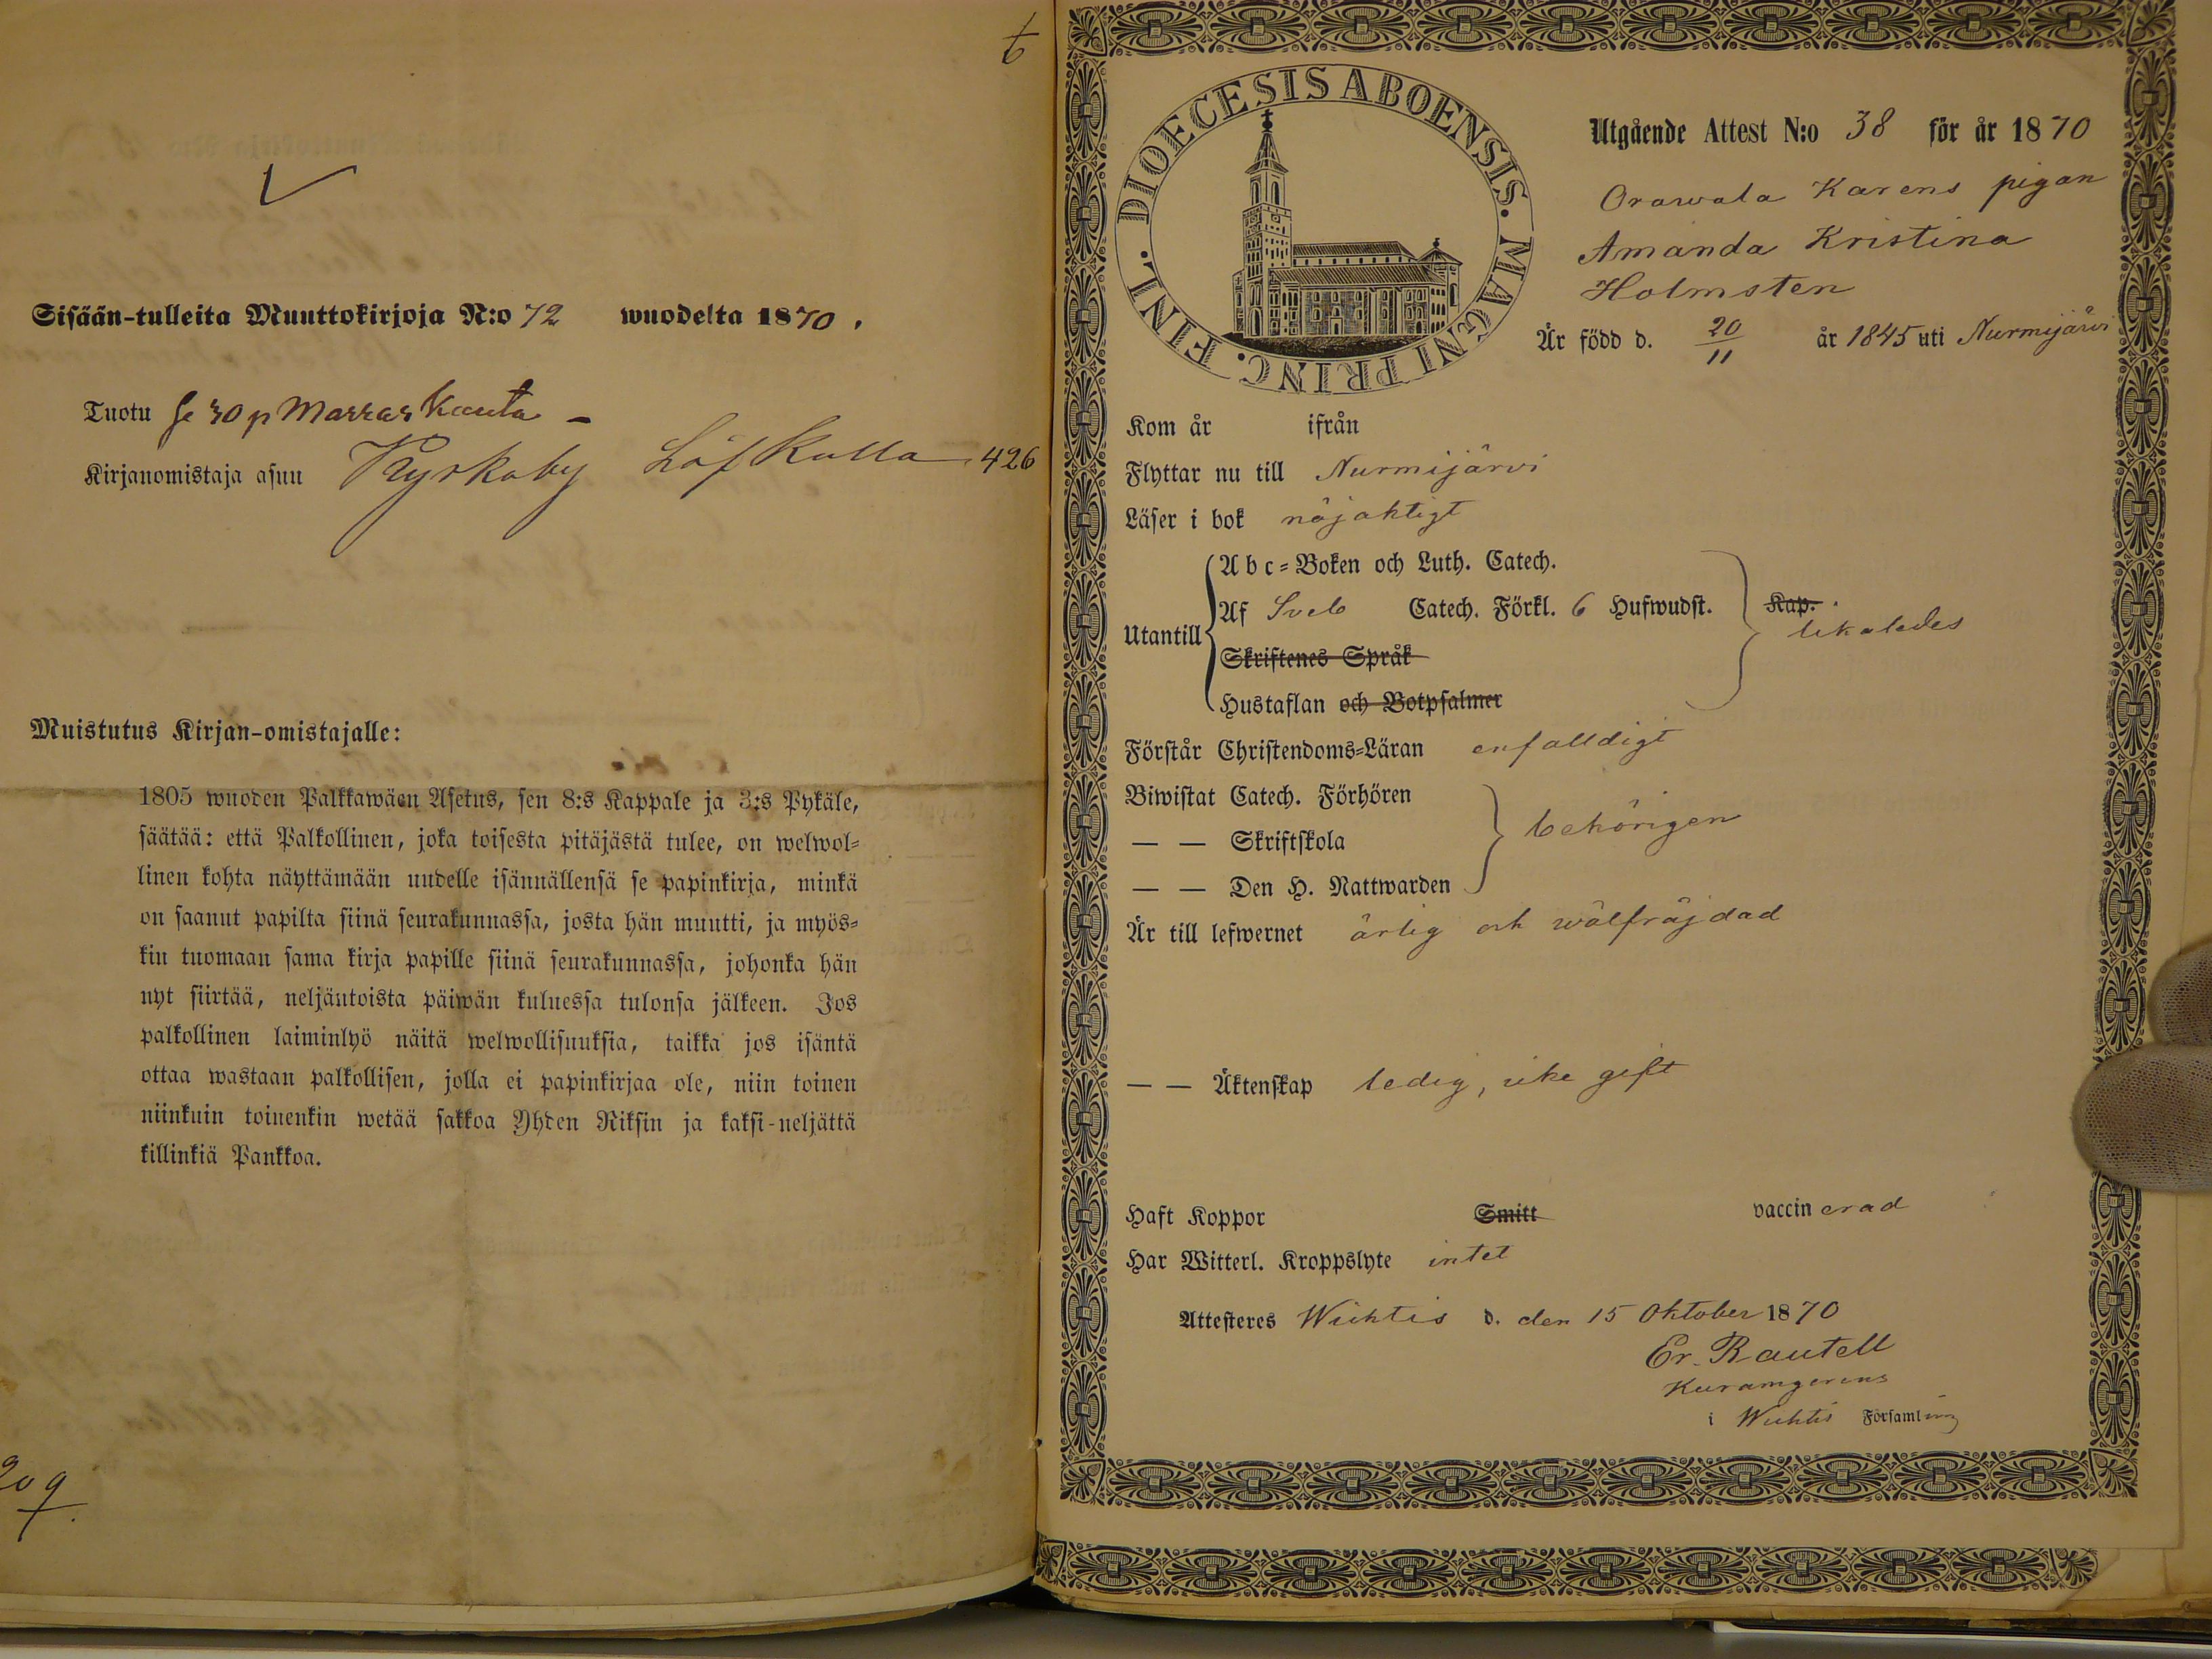 6
Sisään-tulleita Muuttokirjoja N:o 72 wuodelta 1870.
Tuotu se 30 p Marraskuuta –
Kirjanomistaja asuu Kyrkoby Löfkulla 426
Muistutus Kirjan-omistajalle:
1805 wuoden Palkkawäen Asetus, sen 8:s Kappale ja 3:s Pykäle,
säätää: että Palkollinen, joka toisesta pitäjästä tulee, on welwol=
linen kohta näyttämään uudelle isännällensä se papinkirja, minkä
on saanut papilta siinä seurakunnassa, josta hän muutti, ja myös=
kin tuomaan sama kirja papille siinä seurakunnassa, johonka hän
nyt siirtää, neljäntoista päiwän kuluessa tulonsa jälkeen. Jos
palkollinen laiminlyö näitä welwollisuuksia, taikka jos isäntä
ottaa wastaan palkollisen, jolla ei papinkirjaa ole, niin toinen
niinkuin toinenkin wetää sakkoa Yhden Riksin ja kaksi-neljättä
killinkiä Pankkoa.
209
DIOECESIS ABOENSIS. MAGNI PRINC. FINL.
Utgående Attest N:o 38 för år 1870
Orawala Karens pigan
Amanda Kristina
Holmsten
Är född d. 20/11 år 1845 uti Nurmijärvi
Kom år ifrån
Flyttar nu till Nurmijärvi
Läser i bok nöjaktigt
Utantill
Abc=Boken och Luth. Catech.
Af Sveb Catech. Förkl. 6 Hufwudst.
Skriftenes Språk
Hustaflan och Botpsalmer
Kap.
likaledes
Förstår Christendoms=Läran enfalldigt
Biwistat Catech. Förhören
— — Skriftskola
— — Den H. Nattwarden
behörigen
Är till lefwernet ärlig och wälfräjdad
— — Äktenskap ledig, icke gift
Haft Koppor Smitt vaccinerad
Har Witterl. Kroppslyte intet
Attesteres Wichtis d. den 15 Oktober 1870
Er. Rautell
i Wichtis Församling